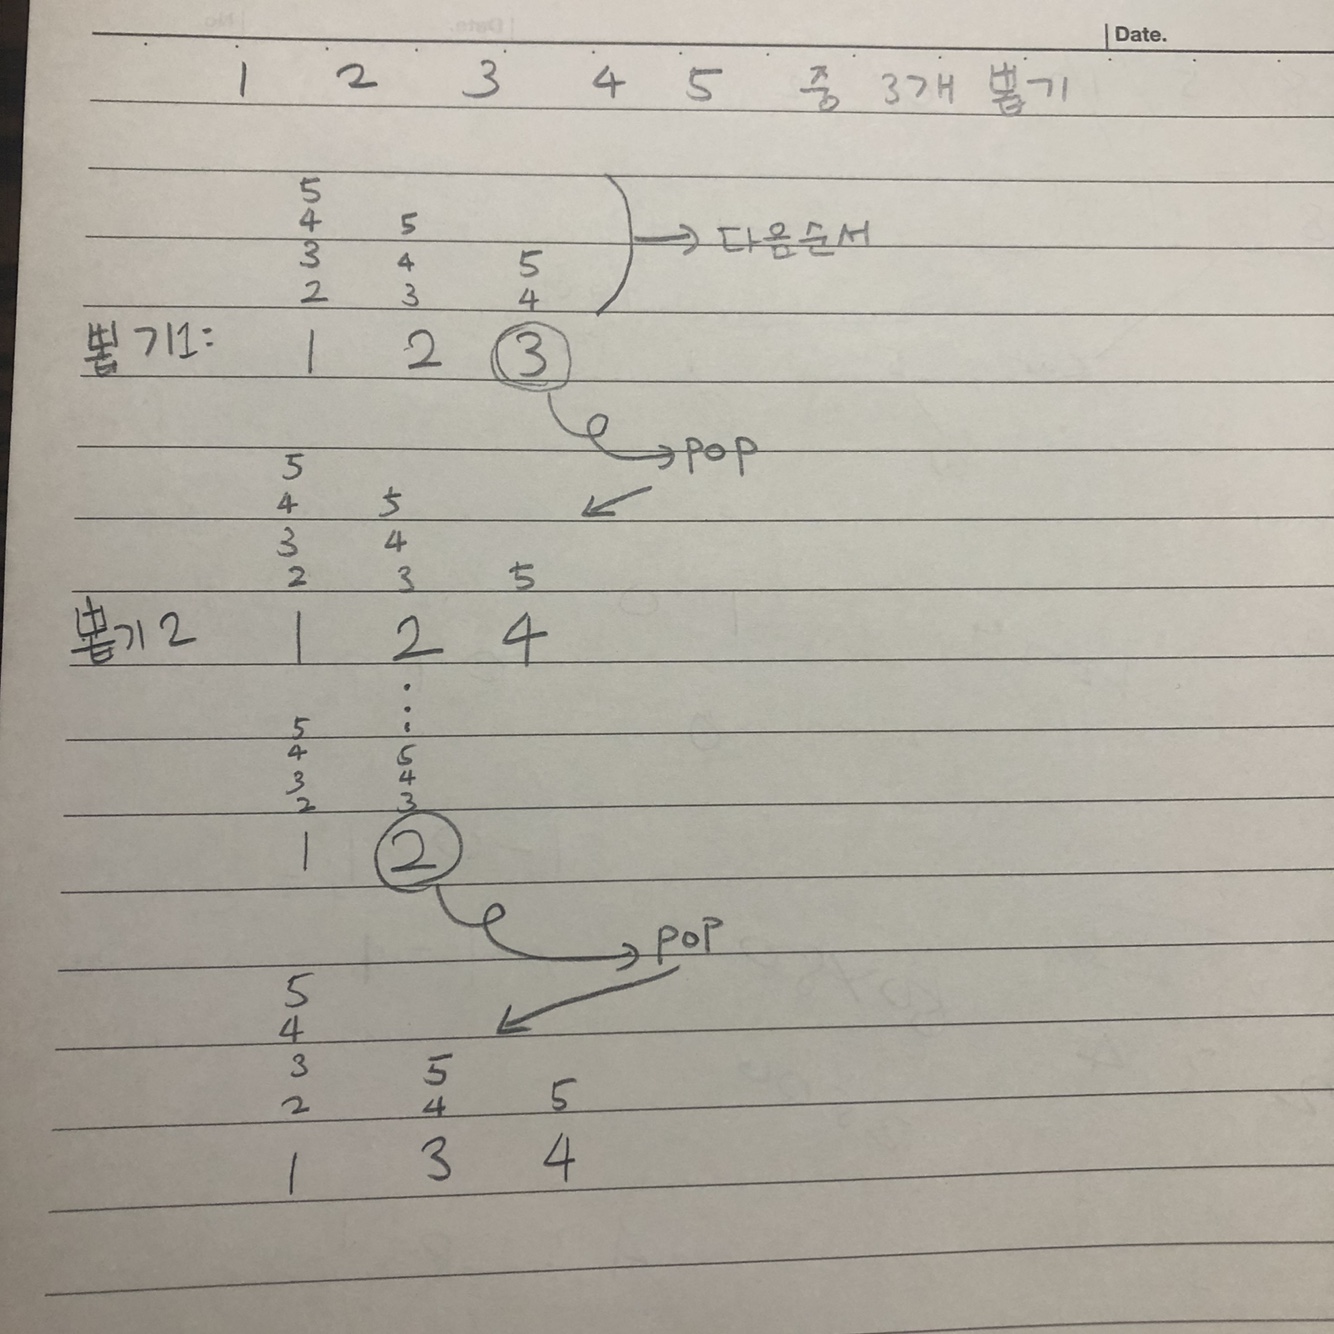 Date.
1 2 3 4 5 중 3개 뽑기
5
4 5
3 4 5 다음순서
2 3 4
뽑기1: 1 2 3
pop
5
4 5
3 4
2 3 5
뽑기 2 1 2 4
⋮
5
4 5
3 4
2 3
1 2
pop
5
4
3 5
2 4 5
1 3 4